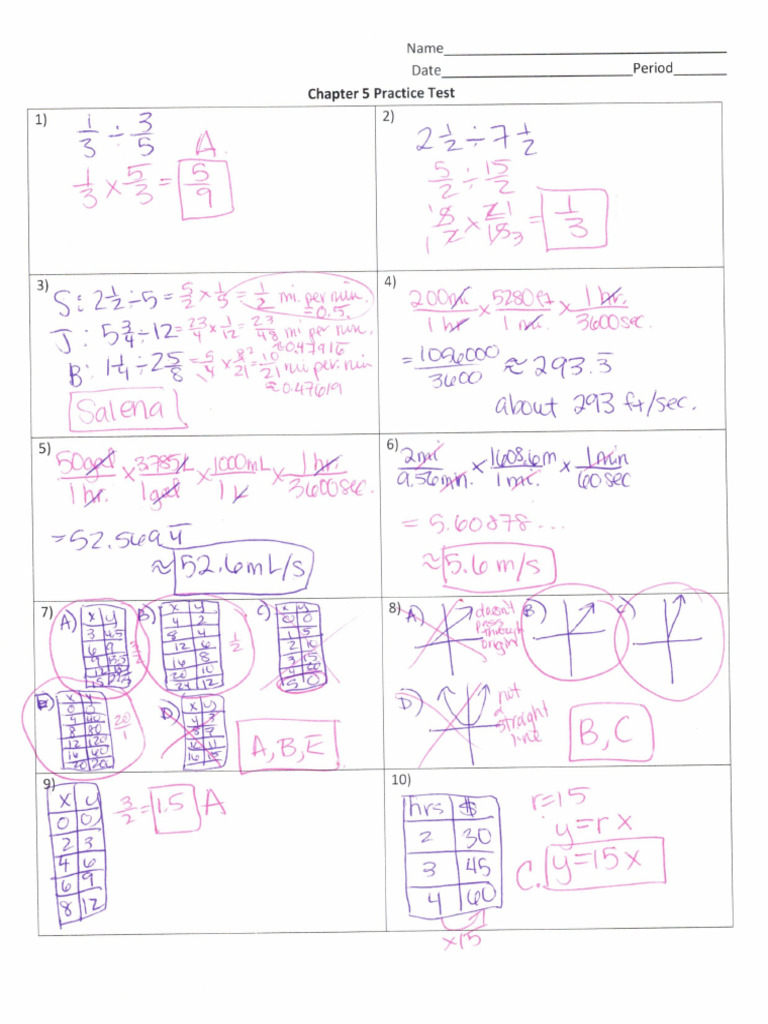 Name
Date Period
Chapter 5 Practice Test
1)
1/3 ÷ 3/5
A.
1/3 × 5/3 = 5/9
2)
2 1/2 ÷ 7 1/2
5/2 ÷ 15/2
1 5/2 1 × 2 1/15 3 = 1/3
3)
S: 2 1/2 ÷ 5 = 5/2 × 1/5 = 1/2 mi. per min.
= 0.5.
J: 5 3/4 ÷ 12 = 23/4 × 1/12 = 23/48 mi per min.
≈ 0.47916
B: 1 1/4 ÷ 2 5/8 = 5/4 × 8 2/21 = 10/21 mi per min
≈ 0.47619
Salena
4)
200mi/1 hr × 5280 ft/1 mi. × 1 hr./3600 sec.
= 1056000/3600 ≈ 293.3
about 293 ft/sec.
5)
50 gal/1 hr. × 3.785 L/1 gal × 1000 mL/1 L × 1 hr./3600 sec.
= 52.5694
≈ 52.6 mL/s
6)
2 mi/9.56 min. × 1608.6 m/1 mi. × 1 min/60 sec
= 5.60878...
≈ 5.6 m/s
7)
A) B) C)
x y x y x y
3 4.5 4 2 0 0
6 9 8 4 1 5
12 6
16 8
20 10
24 12
3/2
1/2
E) D)
x y x y
0 0
4 40
8 80
12 120
20/1
A, B, E
8)
A) doesn't pass through origin
B) C)
D) not a straight line
B, C
9)
x y
0 0
2 3
4 6
6 9
8 12
3/2 = 1.5 A
10)
hrs $
2 30
3 45
4 60
×15
r=15
y=rx
C. y=15x